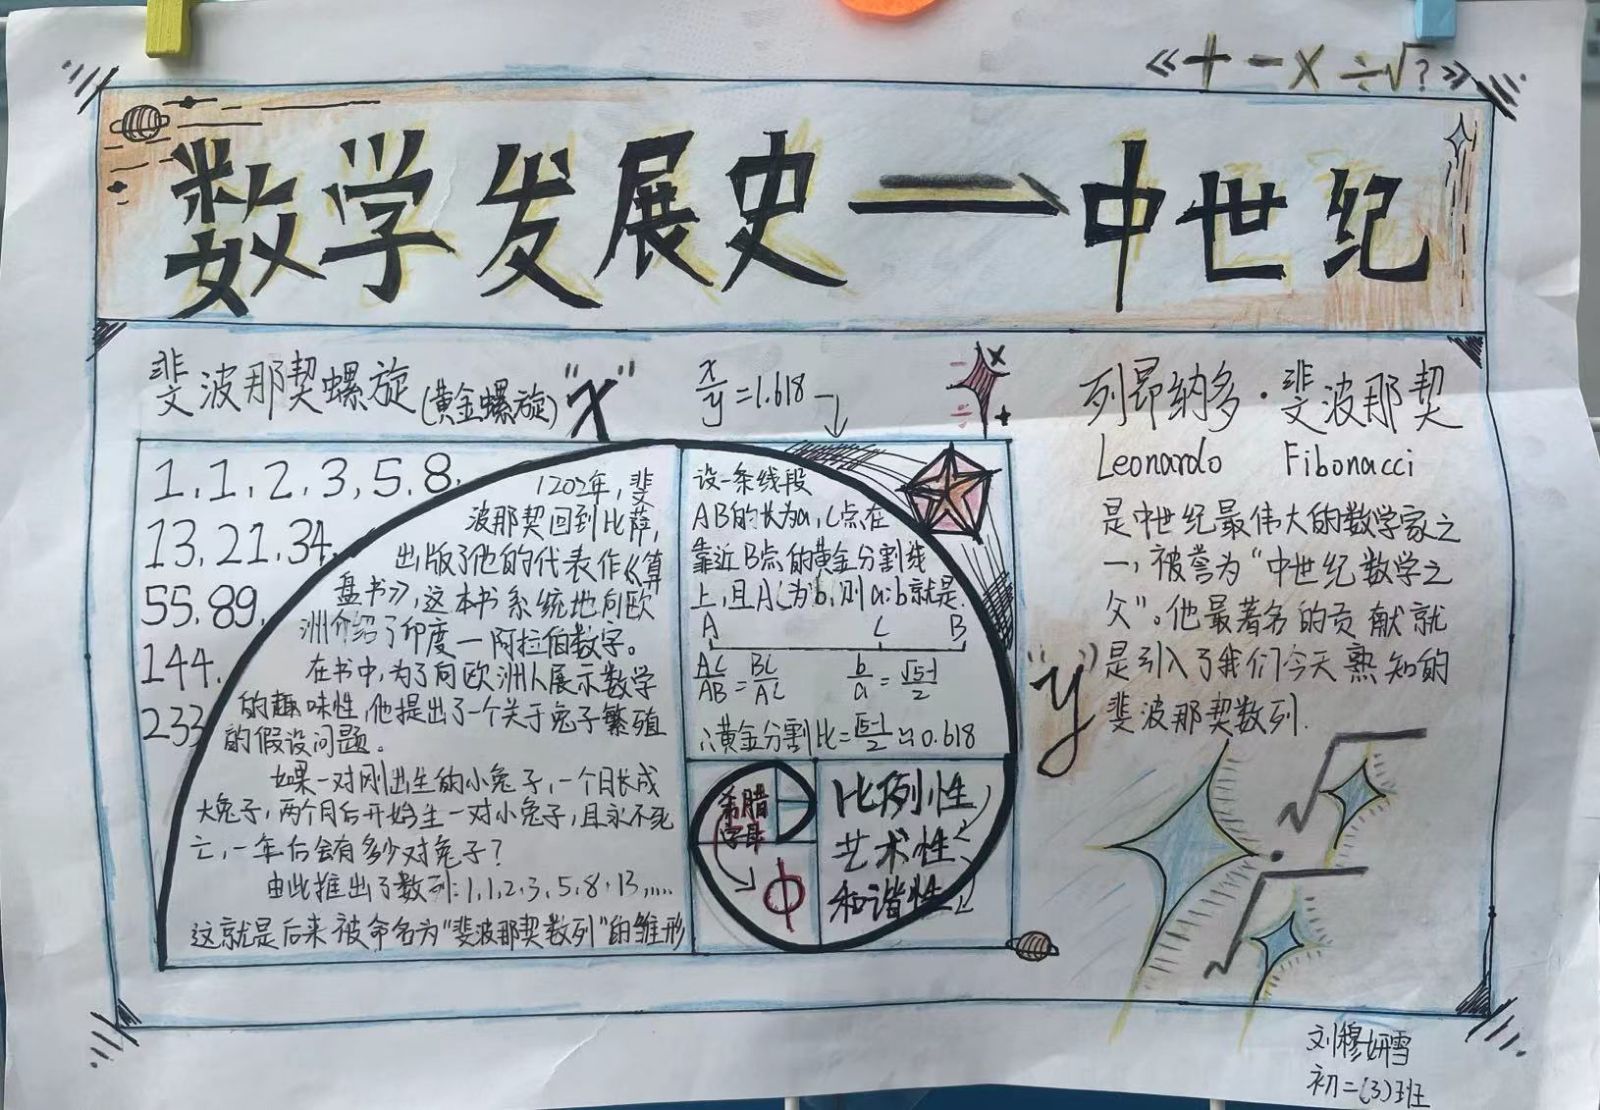 《+ - × ÷ √?》
数学发展史→中世纪
斐波那契螺旋(黄金螺旋)
"x"
x/y=1.618
1,1,2,3,5,8,
13,21,34,
55,89,
144,
233
1202年,斐
波那契回到比萨,
出版了他的代表作《算
盘书》,这本书系统地向欧
洲介绍了印度—阿拉伯数字。
在书中,为了向欧洲人展示数学
的趣味性,他提出了一个关于兔子繁殖
的假设问题。
如果一对刚出生的小兔子,一个月长成
大兔子,两个月后开始生一对小兔子,且永不死
亡,一年后会有多少对兔子?
由此推出了数列:1,1,2,3,5,8,13,……
这就是后来被命名为"斐波那契数列"的雏形
设一条线段
AB的长为a,C点在
靠近B点的黄金分割线
上,且AC为b,则a:b就是.
A C B
AC/AB=BC/AC b/a=√5-1/2
∴黄金分割比=√5-1/2≈0.618
希腊
字母
φ
比例性
艺术性
和谐性
列昂纳多·斐波那契
Leonardo Fibonacci
是中世纪最伟大的数学家之
一,被誉为"中世纪数学之
父"。他最著名的贡献就
是引入了我们今天熟知的
斐波那契数列.
"y"
刘穆妍雪
初二(3)班